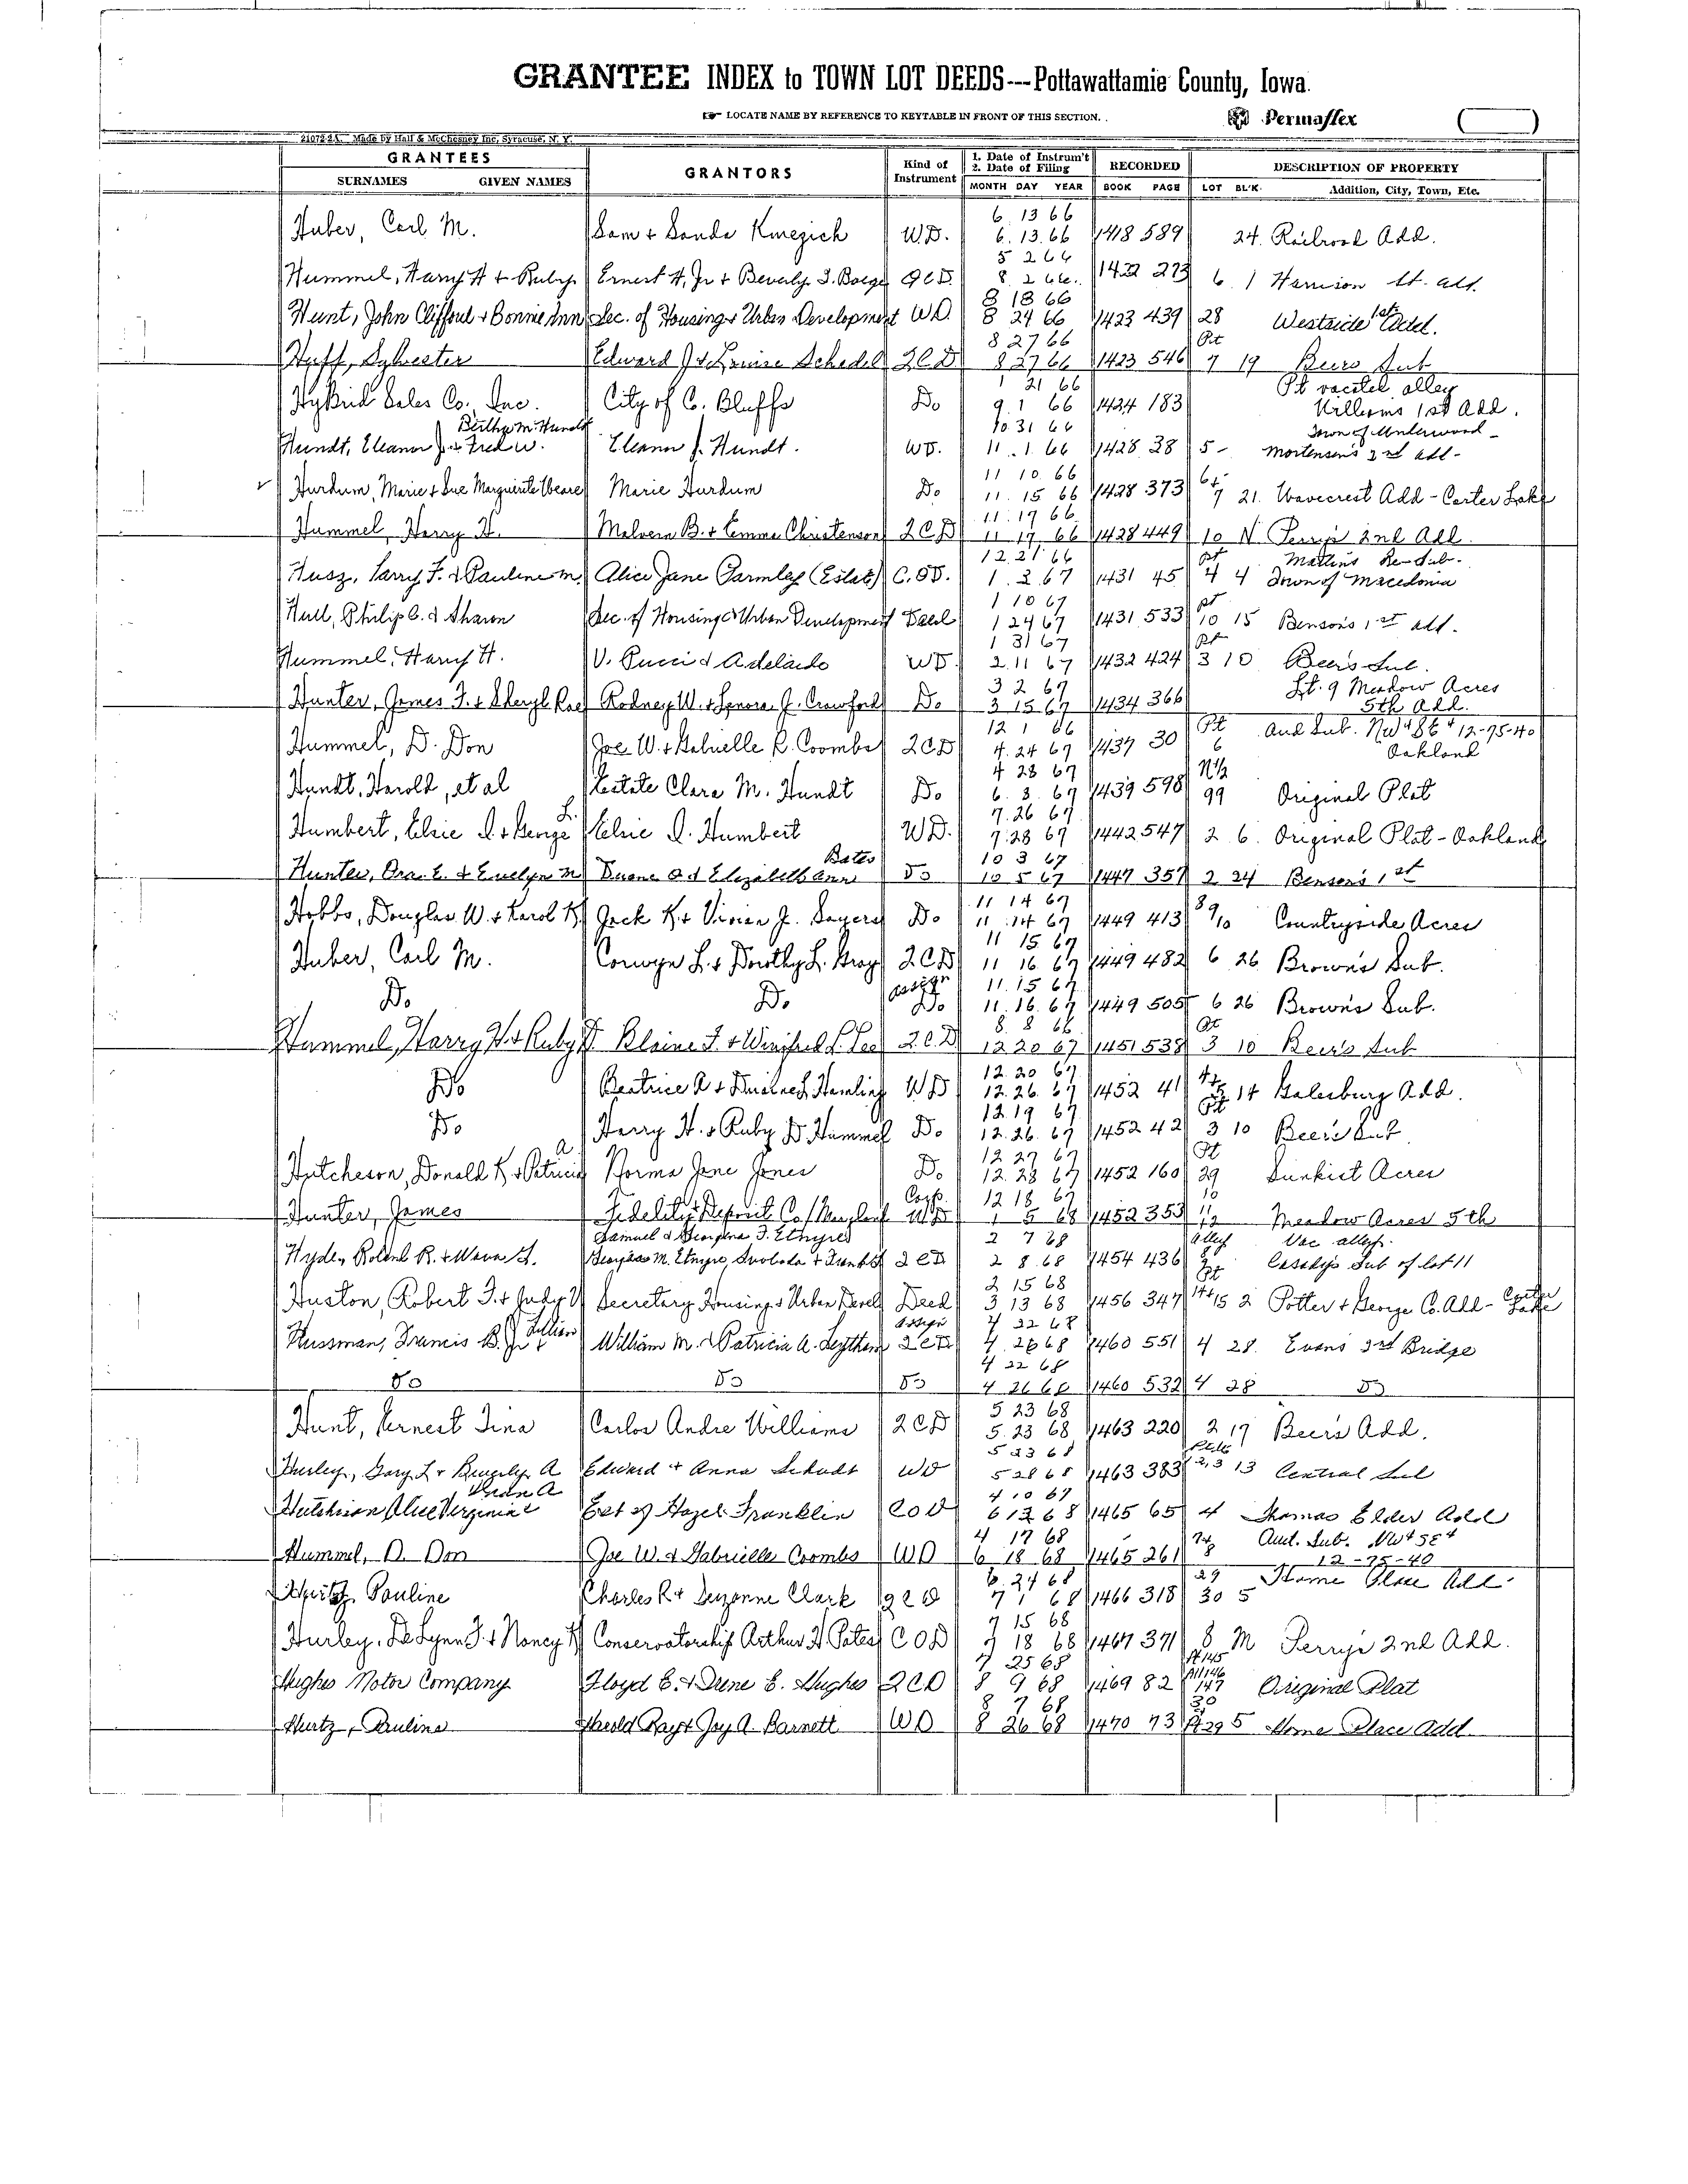 GRANTEE INDEX to TOWN LOT DEEDS---Pottawattamie County, Iowa.
LOCATE NAME BY REFERENCE TO KEYTABLE IN FRONT OF THIS SECTION.
Permaflex
21072-24 Made by Hall & McChesney Inc, Syracuse, N. Y.
GRANTEES
SURNAMES GIVEN NAMES
GRANTORS
Kind of Instrument
1. Date of Instrum't
2. Date of Filing
MONTH DAY YEAR
RECORDED
BOOK PAGE
DESCRIPTION OF PROPERTY
LOT BL'K. Addition, City, Town, Etc.
6 13 66
Huber, Carl M. Sam + Sanda Kmezich W.D. 6. 13. 66 1418 589 24. Railroad Add.
5 2 66
Hummel, Harry H + Ruby Ernest H, Jr + Beverly J. Boege QCD. 8 2 66. 1422 273 6 1 Harrison St. add.
8 18 66
Hunt, John Clifford + Bonnie Ann Sec. of Housing + Urban Development WD. 8 24 66 1423 439 28 Westside 1st Add.
8 27 66 Pt
Huff, Sylvester Edward J + Louise Schedel 2CD 8 27 66 1423 546 7 19 Beers Sub
1 21 66 Pt vacated alley
Hybrid Sales Co., Inc. City of C. Bluffs Do 9. 1 66 1424 183 Williams 1st Add.
Bertha M. Hundt 10 31 66 Town of Underwood
Hundt, Eleanor J. + Fred W. Eleanor J. Hundt. WD. 11 . 1 66 1428 38 5 - Mortensen's 2nd add -
11 10 66 6+
Hurdum, Marie + Sue Marguerite Marie Hurdum Do 11 15 66 1428 373 7 21. Wavecrest Add - Carter Lake
11 17 66
Hummel, Harry H. Malvern B. + Emma Christensen 2CD 11 17 66 1428 449 10 N Perry's 2nd Add
12 21 66 Pt Mattins Re-Sub.
Husz, Larry F. & Pauline M. Alice Jane Parmley (Estate) C.OD. 1 . 3 67 1431 45 4 4 Town of Macedonia
1 10 67 pt
Hull, Philip C. & Sharon Sec. of Housing & Urban Development Deed 1 24 67 1431 533 10 15 Benson's 1st add.
1 31 67 Pt
Hummel, Harry H. V. Pucci & Adelaide WD. 2. 11 67 1432 424 3 10 Beers Sub.
3 2 67 Lt. 9 Meadow Acres
Hunter, James F. + Sheryl Rae Rodney W. + Lenora J. Crawford Do 3 15 67 1434 366 5th Add.
12 1 66 Pt Aud Sub. NW4 SE4 12-75-40
Hummel, D. Don Joe W. + Gabrielle R. Coombs 2CD 4. 24 67 1437 30 6 Oakland
4 28 67 N½
Hundt, Harold, et al Estate Clara M. Hundt Do 6. 8. 67 1439 598 99 Original Plat
L. 7. 26 67
Humbert, Elsie D. + George Elsie D. Humbert WD. 7. 28 67 1442 547 2 6. Original Plat - Oakland
Bates 10 3 67
Hunter, Ora E. & Evelyn M Duane O & Elizabeth Ann Do 10 5 67 1447 357 2 24 Benson's 1st
11 14 67 8 9
Hobbs, Douglas W. + Karol K Jack K + Vivian J. Sayers Do 11 14 67 1449 413 10 Countryside Acres
11 15 67
Huber, Carl M. Corwyn L. + Dorothy L. Gray 2CD 11 16 67 1449 482 6 26 Brown's Sub.
Assign 11. 15 67
Do Do Do 11. 16. 67 1449 505 6 26 Brown's Sub.
8. 8 66 Pt
Hummel, Harry H + Ruby D Blaine J. + Winifred L. Lee 2CD 12 20 67 1451 538 3 10 Beers Sub
12 20 67
Do Beatrice A + Hamling WD 12. 26. 67 1452 41 14 Galesburg Add.
12. 19 67 Pt
Do Harry H. + Ruby D. Hummel Do 12. 26. 67 1452 42 3 10 Beers Sub
A 12 27 67 Pt
Hutcheson, Donald K + Patricia Norma Jane Jones Do 12. 28 67 1452 160 29 Sunkist Acres
Corp. 12 18 67 10
Hunter, James Fidelity + Deposit Co/Maryland WD 1 5 68 1452 353 11 12 Meadow Acres 5th
Samuel & Georgena F. Etnyre 2 7 68 alley Vac alley.
Hyde, Roland R. + Wava L. Douglas M. Etnyre, Svoboda + 2CD 2 8 68 1454 436 Cassady's Sub of lot 11
2 15 68 Pt
Huston, Robert F. + Judy V Secretary Housing + Urban Devel Deed 3 13 68 1456 347 14+15 2 Potter + George Co. Add - Carter Lake
Lillian Assign 4 22 68
Hussman, Francis B. Jr + William M. & Patricia A. Leytham 2CD 4. 26 68 1460 551 4 28. Evans 3rd Bridge
4 22 68
Do Do Do 4 26 68 1460 532 4 28 Do
5 23 68
Hunt, Ernest Tina Carlos Andre Williams 2CD 5. 23 68 1463 220 2 17 Beers Add.
5 23 68
Hurley, Gary L + Beverly A Edward + Anna Schudt WD 5 28 68 1463 383 2,3 13 Central Sub
Vean A 4 10 67
Hutchison Alice Virginia Est of Hazel Franklin COD 6 13 68 1465 65 4 Thomas Elder Add
4 17 68 Aud. Sub. NW4 SE4
Hummel, D. Don Joe W. & Gabrielle Coombs WD 6 18 68 1465 261 8 12-75-40
6. 24 68 29 Home Place Add.
Hurtz, Pauline Charles R + Suzanne Clark 2CD 7 1 68 1466 318 30 5
7 15 68
Hurley, DeLynn J. + Nancy K Conservatorship Arthur H Pates COD 7 18 68 1467 371 8 M Perry's 2nd Add.
7 25 68 Pt 145
Hughes Motor Company Floyd E. + June E. Hughes 2CD 8 9 68 1469 82 All 146 147 Original Plat
8 7 68 30
Hurtz, Pauline Harold Ray + Joy A. Barnett WD 8 26 68 1470 73 Pt 29 5 Home Place Add